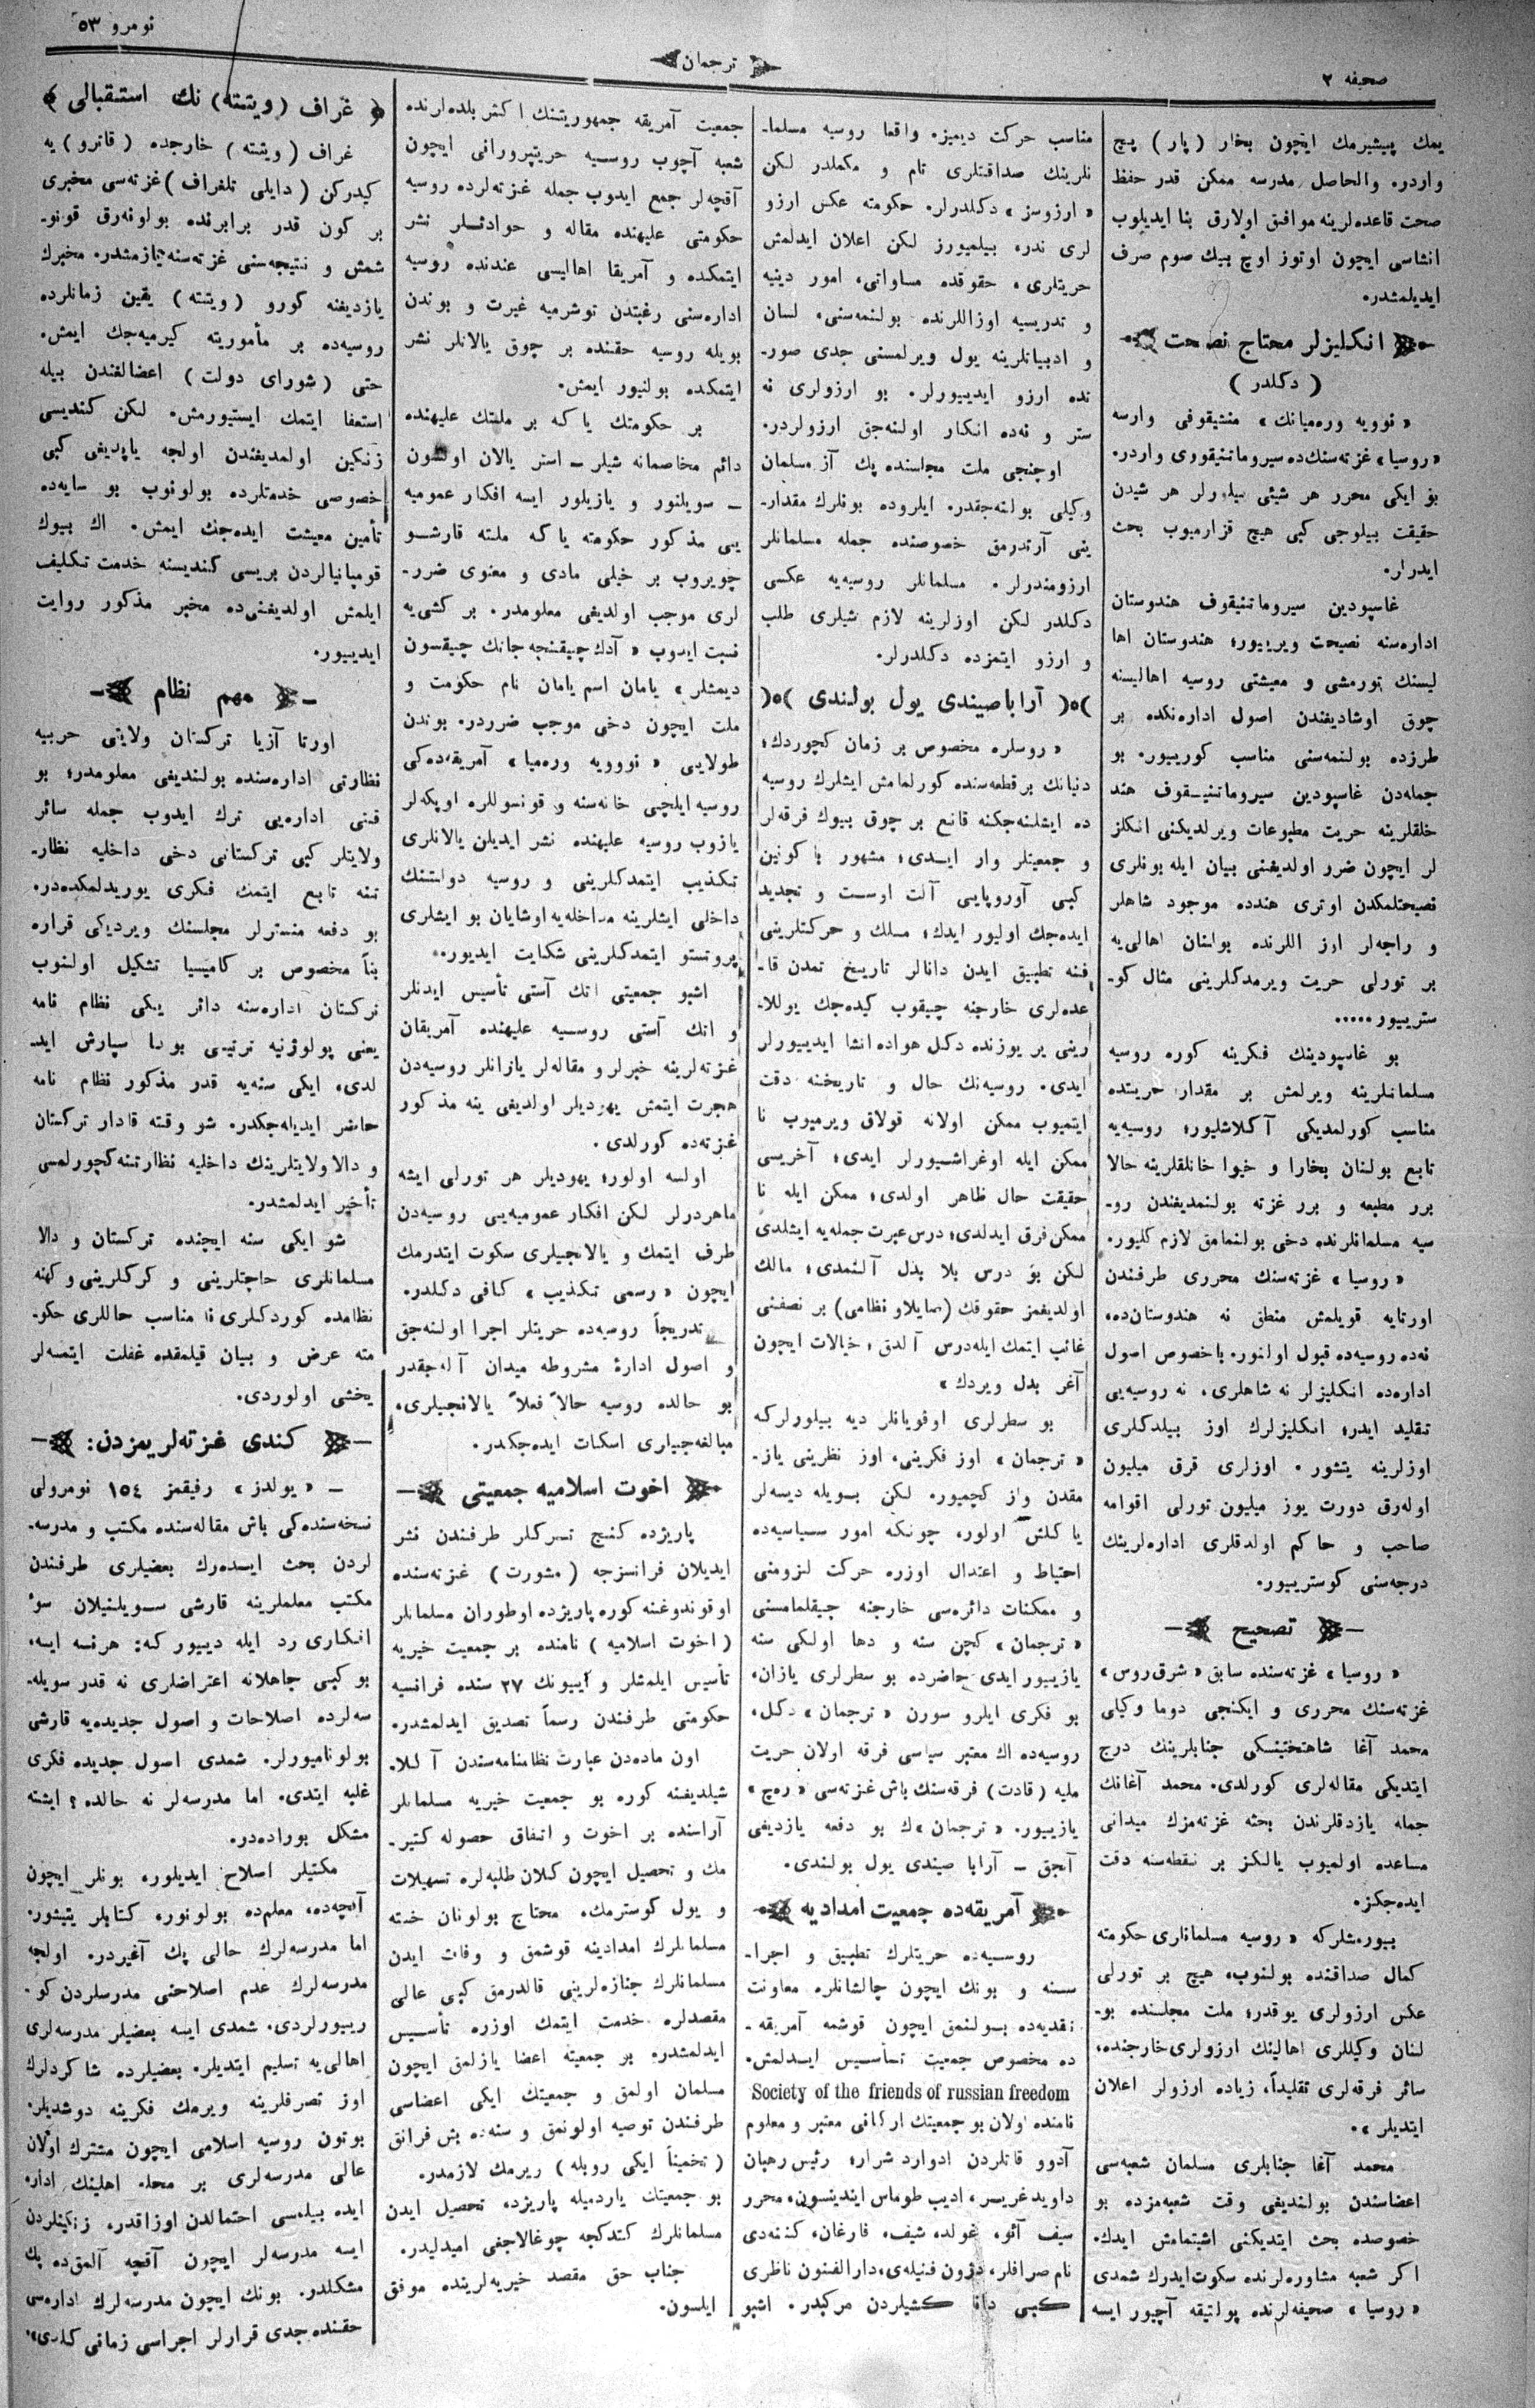 صحیفه ٢
ترجمان
نومرو ٥٣
یمك پیشیرمك ایچون بخار (پار) پیچ
واردر. والحاصل مدرسه ممكن قدر حفظ
صحت قاعده‌لرینه موافق اولارق بنا ایدیلوب
انشاسی ایچون اوتوز اوچ بیك صوم صرف
ایدیلمشدر.
انكلیزلر محتاج نصحت
( دكلدر )
« نوویه وره‌میانك » منشیقوفی وارسه
« روسیا » غزته‌سنك‌ده سیروماتنیقووی واردر.
بو ایكی محرر هر شیئی بیلورلر هر شیدن
حقیقت بیلوجی كبی هیچ قزارمیوب بحث
ایدرلر.
غاسپودین سیروماتنیقوف هندوستان
اداره‌سنه نصیحت ویرییور؛ هندوستان اها
لیسنك تورمشی و معیشتی روسیه اهالیسنه
چوق اوشادیغندن اصول اداره‌نكده بر
طرزده بولنمه‌سنی مناسب كورییور. بو
جمله‌دن غاسپودین سیروماتنیقوف هند
خلقلرینه حریت مطبوعات ویرلدیكنی انكلز
لر ایچون ضرو اولدیغنی بیان ایله بونلری
نصیحتلمكدن اوتری هندده موجود شاهلر
و راجه‌لر اوز اللرنده بولنان اهالی‌یه
بر تورلی حریت ویرمدكلرینی مثال كو-
ستریبور.....
بو غاسپودینك فكرینه كوره روسیه
مسلمانلرینه ویرلمش بر مقدار حریتده
مناسب كورلمدیكی آكلاشلیور؛ روسیه‌یه
تابع بولنان بخارا و خیوا خانلقلرینه حالا
برر مطبعه و برر غزته بولنمدیغندن رو-
سیه مسلمانلرنده دخی بولنمامق لازم كلیور.
« روسیا » غزته‌سنك محرری طرفندن
اورتایه قویلمش منطق نه هندوستان‌ده،
نه‌ده روسیه‌ده قبول اولنور. باخصوص اصول
اداره‌ده انكلیزلر نه شاهلری، نه روسیه‌یی
تقلید ایدر؛ انكلیزلرك اوز بیلدكلری
اوزلرینه یتشور. اوزلری قرق میلیون
اوله‌رق دورت یوز میلیون تورلی اقوامه
صاحب و حاكم اولدقلری اداره‌لرینك
درجه‌سنی كوستریبور.
تصحیح
« روسیا » غزته‌سنده سابق « شرق روس »
غزته‌سنك محرری و ایكنجی دوما وكیلی
محمد آغا شاهتختینسكی جنابلرینك درج
ایتدیكی مقاله‌لری كورلدی. محمد آغانك
جمله یازدقلرندن بحثه غزته‌مزك میدانی
مساعده اولمیوب یالكز بر نقطه‌سنه دقت
ایده‌جكز.
بیورمشلركه « روسیه مسلمانلری حكومته
كمال صداقتده بولنوب، هیچ بر تورلی
عكس ارزولری یوقدر؛ ملت مجلسنده بو-
لنان وكیللری اهالینك ارزولری خارجنده،
سائر فرقه‌لری تقلیداً، زیاده ارزولر اعلان
ایتدیلر ».
محمد آغا جنابلری مسلمان شعبه‌سی
اعضاسندن بولندیغی وقت شعبه‌مزده بو
خصوصده بحث ایتدیكنی اشیتمامش ایدك.
اكر شعبه مشاوره‌لرنده سكوت ایدرك شمدی
« روسیا » صحیفه‌لرنده پولتیقه آچیور ایسه
مناسب حركت دیمیز. واقعا روسیه مسلما-
نلرینك صداقتلری تام و مكملدر لكن
« ارزوسز » دكلدرلر. حكومته عكس ارزو
لری ندر، بیلمیورز لكن اعلان ایدلمش
حریتلری، حقوقده مساواتی، امور دینیه
و تدریسیه اوزاللرنده بولنمه‌سنی، لسان
و ادبیاتلرینه یول ویرلمسنی جدی صور-
تده ارزو ایدییورلر. بو ارزولری نه
ستر و نه‌ده انكار اولنه‌جق ارزولردر.
اوچنجی ملت مجلسنده پك آز مسلمان
وكیلی بولنه‌جقدر. ایلروده بونلرك مقدار-
ینی آرتدرمق خصوصنده جمله مسلمانلر
ارزومندرلر. مسلمانلر روسیه‌یه عكسی
دكلدر لكن اوزلرینه لازم شیلری طلب
و ارزو ایتمزده دكلدرلر.
آراباصیندی یول بولندی
« روسلره مخصوص بر زمان كچوردك؛
دنیانك بر قطعه‌سنده كورلمامش ایشلرك روسیه
ده ایشلنه‌جكنه قانع بر چوق بیوك فرقه‌لر
و جمعیتلر وار ایدی؛ مشهور باكونین
كبی آوروپایی آلت اوست و تجدید
ایده‌جك اولیور ایدك؛ مسلك و حركتلرینی
فنه تطبیق ایدن دانالر تاریخ تمدن قا-
عده‌لری خارجنه چیقوب كیده‌جك یوللا-
رینی یر یوزنده دكل هواده انشا ایدییورلر
ایدی. روسیه‌نك حال و تاریخنه دقت
ایتمیوب ممكن اولانه قولاق ویرمیوب نا
ممكن ایله اوغراشیورلر ایدی؛ آخریسی
حقیقت حال ظاهر اولدی؛ ممكن ایله نا
ممكن فرق ایدلدی؛ درس عبرت جمله‌یه ایشلدی
لكن بو درس بلا بدل آلنمدی؛ مالك
اولدیغمز حقوقك (سایلاو نظامی) بر نصفنی
غائب ایتمك ایله درس آلدق، خیالات ایچون
آغر بدل ویردك »
بو سطرلری اوقویانلر دیه بیلورلركه
« ترجمان » اوز فكرینی، اوز نظرینی یاز-
مقدن واز كچمیور. لكن بویله دیسه‌لر
یاكلش اولور، چونكه امور سیاسیه‌ده
احتیاط و اعتدال اوزره حركت لزومنی
و ممكنات دائره‌سی خارجنه چیقلمامسنی
« ترجمان » كچن سنه و دها اولكی سنه
یازییور ایدی حاضرده بو سطرلری یازان،
بو فكری ایلرو سورن « ترجمان » دكل،
روسیه‌ده اك معتبر سیاسی فرقه اولان حریت
ملیه (قادت) فرقه‌سنك باش غزته‌سی « ره‌چ »
یازییور. « ترجمان »ك بو دفعه یازدیغی
آنجق – آرابا صیندی یول بولندی.
آمریقه‌ده جمعیت امدادیه
روسیه‌ده حریتلرك تطبیق و اجرا-
سنه و بونك ایچون چالشانلره معاونت
نقدیه‌ده بولنمق ایچون قوشمه آمریقه-
ده مخصوص جمعیت تأسیس ایدلمش.
Society of the friends of russian freedom
نامنده اولان بو جمعیتك اركانی معتبر و معلوم
آدوو قاتلردن ادوارد شرار؛ رئیس رهبان
داوید غریر، ادیب طوماس ایندینسون، محرر
سیف آثو، غولد، شیف، فارغان، كننه‌دی
نام صرافلر، دژون فنیله‌ی، دارالفنون ناظری
كبی دانا كشیلردن مركبدر. اشبو
جمعیت آمریقه جمهوریتنك اكثر بلده‌لرنده
شعبه آچوب روسیه حریتپرورانی ایچون
آقچه‌لر جمع ایدوب جمله غزته‌لرده روسیه
حكومتی علیهنده مقاله و حوادثلر نشر
ایتمكده و آمریقا اهالیسی عندنده روسیه
اداره‌سنی رغبتدن توشرمیه غیرت و بوندن
بویله روسیه حقنده بر چوق یالانلر نشر
ایتمكده بولنیور ایمش.
بر حكومتك یاكه بر ملتك علیهنده
دائم مخاصمانه شیلر – استر یالان اولسون
– سویلنور و یازیلور ایسه افكار عمومیه
یی مذكور حكومته یاكه ملته قارشو
چویروب بر خیلی مادی و معنوی ضرر-
لری موجب اولدیغی معلومدر. بر كشی‌یه
نسبت ایدوب « آدك چیقنجه جانك چیقسون
دیمشلر » یامان اسم یامان نام حكومت و
ملت ایچون دخی موجب ضرردر. بوندن
طولایی « نوویه وره‌میا » آمریقه‌ده‌كی
روسیه ایلچی خانه‌سنه و قونسوللره اوپكه‌لر
یازوب روسیه علیهنده نشر ایدیلن یالانلری
تكذیب ایتمدكلرینی و روسیه دولتنك
داخلی ایشلرینه مداخله‌یه اوشایان بو ایشلری
پروتستو ایتمدكلرینی شكایت ایدیور.
اشبو جمعیتی انك آستی تأسیس ایدنلر
و انك آستی روسیه علیهنده آمریقان
غزته‌لرینه خبرلر و مقاله‌لر یازانلر روسیه‌دن
هجرت ایتمش یهودیلر اولدیغی ینه مذكور
غزته‌ده كورلدی.
اولسه اولور؛ یهودیلر هر تورلی ایشه
ماهردرلر لكن افكار عمومیه‌یی روسیه‌دن
طرف ایتمك و یالانجیلری سكوت ایتدرمك
ایچون « رسمی تكذیب » كافی دكلدر.
تدریجاً روسیه‌ده حریتلر اجرا اولنه‌جق
و اصول ادارهٔ مشروطه میدان آله‌جقدر
بو حالده روسیه حالاً فعلاً یالانجیلری،
مبالغه‌جیلری اسكات ایده‌جكدر.
اخوت اسلامیه جمعیتی
پاریژده كنج تركلر طرفندن نشر
ایدیلان فرانسزجه (مشورت) غزته‌سنده
اوقوندوغنه كوره پاریژده اوطوران مسلمانلر
(اخوت اسلامیه) نامنده بر جمعیت خیریه
تأسیس ایلمشلر و آییونك ٢٧ سنده فرانسیه
حكومتی طرفندن رسماً تصدیق ایدلمشدر.
اون ماده‌دن عبارت نظامنامه‌سندن آكلا-
شیلدیغنه كوره بو جمعیت خیریه مسلمانلر
آراسنده بر اخوت و اتفاق حصوله كتیر-
مك و تحصیل ایچون كلان طلبه‌لره تسهیلات
و یول كوسترمك، محتاج بولونان خسته
مسلمانلرك امدادینه قوشمق و وفات ایدن
مسلمانلرك جنازه‌لرینی قالدرمق كبی عالی
مقصدلره خدمت ایتمك اوزره تأسیس
ایدلمشدر. بر جمعیته اعضا یازلمق ایچون
مسلمان اولمق و جمعیتك ایكی اعضاسی
طرفندن توصیه اولونمق و سنه‌ده بش فرانق
(تخمیناً ایكی روبله) ویرمك لازمدر.
بو جمعیتك یاردمیله پاریژده تحصیل ایدن
مسلمانلرك كتدكجه چوغالاجغی امیدلیدر.
جناب حق مقصد خیریه‌لرینده موفق
ایلسون.
غراف (ویتته) نك استقبالی
غراف (ویتته) خارجده (قاترو) یه
كیدركن (دایلی تلغراف) غزته‌سی مخبری
بر كون قدر برابرنده بولونه‌رق قونو-
شمش و نتیجه‌سنی غزته‌سنه یازمشدر. مخبرك
یازدیغنه كورو (ویتته) یقین زمانلرده
روسیه‌ده بر مأموریته كیرمیه‌جك ایمش.
حتی (شورای دولت) اعضالغندن بیله
استعفا ایتمك ایستیورمش. لكن كندیسی
زنكین اولمدیغندن اولجه یاپدیغی كبی
خصوصی خدمتلرده بولونوب بو سایه‌ده
تأمین معیشت ایده‌جك ایمش. اك بیوك
قومپانیالردن بریسی كندیسنه خدمت تكلیف
ایلمش اولدیغنی‌ده مخبر مذكور روایت
ایدییور.
مهم نظام
اورتا آزیا تركستان ولایتی حربیه
نظارتی اداره‌سنده بولندیغی معلومدر؛ بو
قتی اداره‌یی ترك ایدوب جمله سائر
ولایتلر كبی تركستانی دخی داخلیه نظار-
تنه تابع ایتمك فكری یوریدلمكده‌در.
بو دفعه منسترلر مجلسنك ویردیكی قراره
بناً مخصوص بر كامیسیا تشكیل اولنوب
تركستان اداره‌سنه دائر یكی نظام نامه
یعنی پولوژنیه ترتیبی بوڭا سپارش اید-
لدی، ایكی سنه‌یه قدر مذكور نظام نامه
حاضر ایدیله‌جكدر. شو وقته قادار تركستان
و دالا ولایتلرینك داخلیه نظارتنه كچورلمسی
تأخیر ایدلمشدر.
شو ایكی سنه ایچنده تركستان و دالا
مسلمانلری حاجتلرینی و كركلرینی و كهنه
نظامده كوردكلری نا مناسب حاللری حكو-
مته عرض و بیان قیلمقده غفلت ایتمسه‌لر
یخشی اولوردی.
كندی غزته‌لریمزدن:
– « یولدز » رفیقمز ١٥٤ نومرولی
نسخه‌سنده‌كی باش مقاله‌سنده مكتب و مدرسه-
لردن بحث ایده‌رك بعضیلری طرفندن
مكتب معلملرینه قارشی سویلنیلان سوء
افكاری رد ایله دییور كه: هر نسه ایسه،
بو كبی جاهلانه اعتراضلری نه قدر سویله-
سه‌لرده اصلاحات و اصول جدیده‌یه قارشی
بولونامیورلر. شمدی اصول جدیده فكری
غلبه ایتدی. اما مدرسه‌لر نه حالده؟ ایشته
مشكل بوراده‌در.
مكتبلر اسلاح ایدیلور، بونلر ایچون
آقچه‌ده، معلم‌ده بولونور، كتابلر یتیشور.
اما مدرسه‌لرك حالی پك آغیردر. اولجه
مدرسه‌لرك عدم اصلاحنی مدرسلردن كو-
رییورلردی. شمدی ایسه بعضیلر مدرسه‌لری
اهالی‌یه تسلیم ایتدیلر. بعضیلرده شاكردلرك
اوز تصرفلرینه ویرمك فكرینه دوشدیلر.
بوتون روسیه اسلامی ایچون مشترك اولان
عالی مدرسه‌لری بر محله اهلینك اداره
ایده بیلمسی احتمالدن اوزاقدر، زنكینلردن
ایسه مدرسه‌لر ایچون آقچه آلمق‌ده پك
مشكلدر. بونك ایچون مدرسه‌لرك اداره‌سی
حقنده جدی قرارلر اجراسی زمانی كلدی.